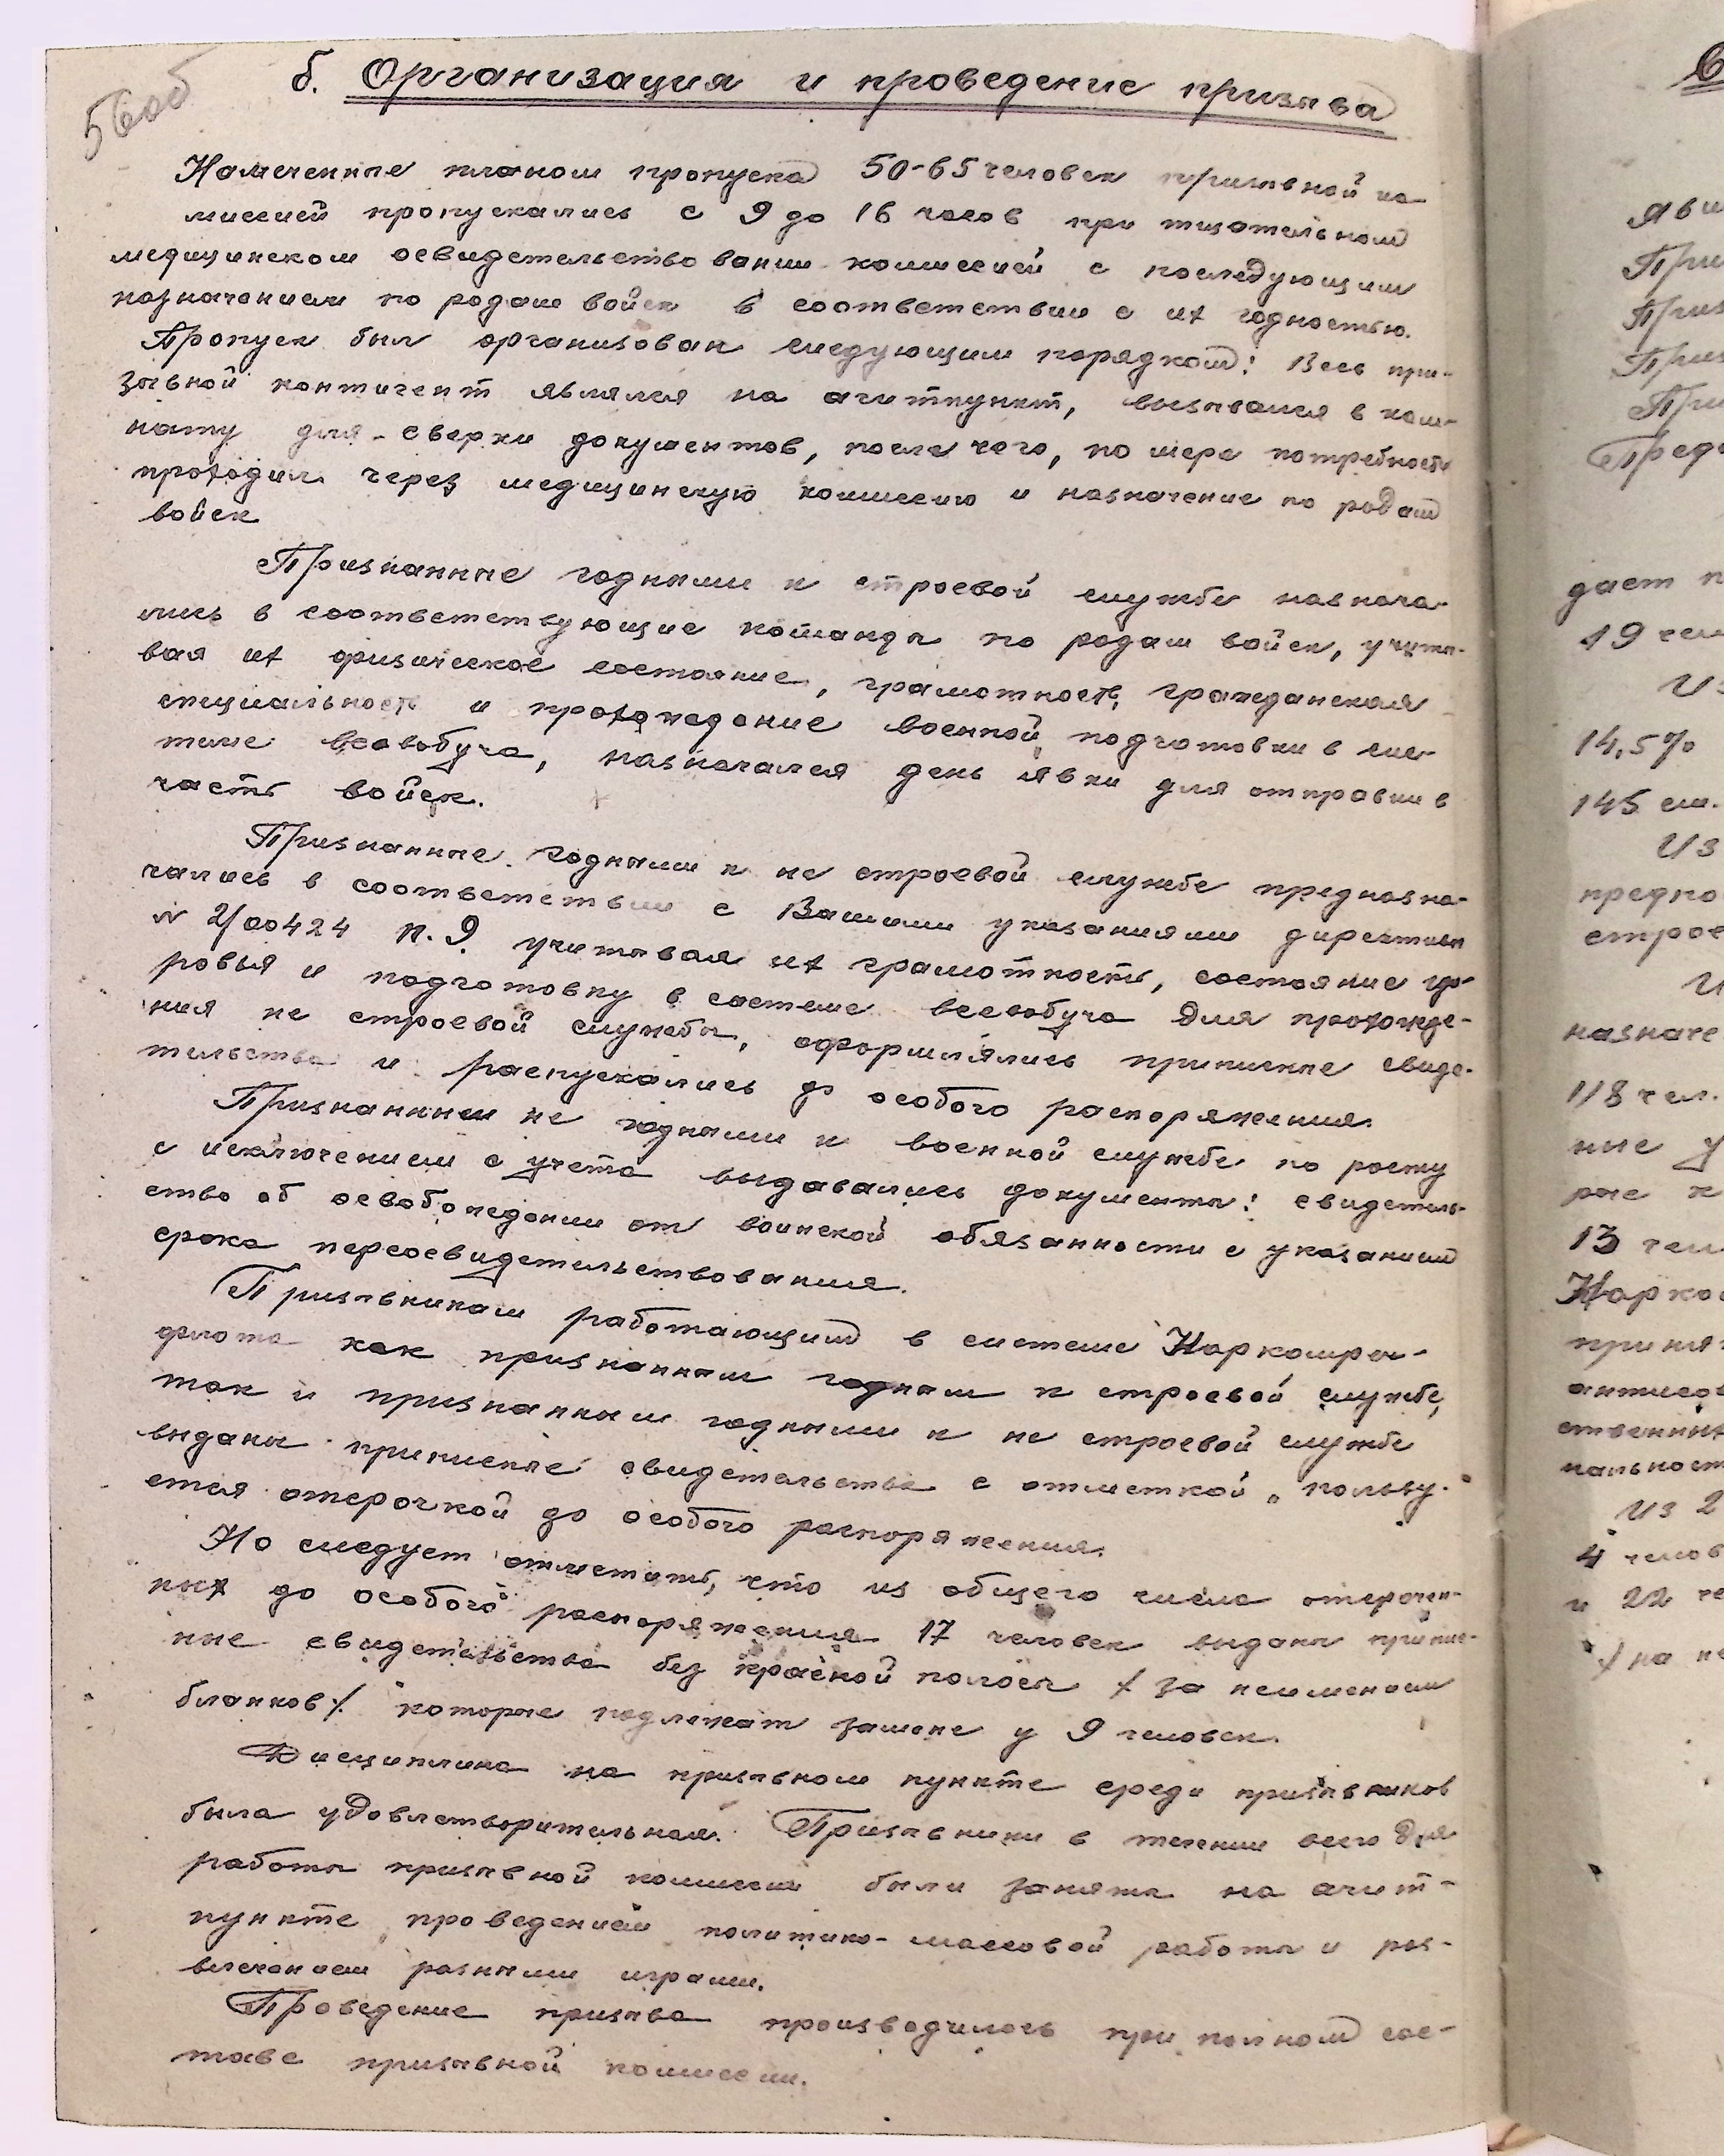 56об
б. Организация и проведение призыва
Намеченные планом пропуска 50-65 человек призывной ко-
миссией пропускались с 9 до 16 часов при тщательном
медицинском освидетельствовании комиссией с последующим
назначением по родам войск в соответствии с их годностью.
Пропуск был организован следующим порядком: Весь при-
зывной контингент являлся на агитпункт, вызывался в ком-
нату для сверки документов, после чего, по мере потребности
проходил через медицинскую комиссию и назначение по родам
войск
Признанные годными к строевой службе назнача-
лись в соответствующие команды по родам войск, учиты-
вая их физическое состояние, грамотность, гражданская
специальность и прохождение военной подготовки в сис-
теме всевобуча, назначался день явки для отправки в
часть войск.
Признанные годными к не строевой службе предназна-
чались в соответствии с Вашими указаниями директивы
№ 2/00424 п. 9 учитывая их грамотность, состояние здо-
ровья и подготовку в системе всевобуча для прохожде-
ния не строевой службы, оформлялись приписные свиде-
тельства и распускались до особого распоряжения.
Признанными не годными к военной службе по росту
с исключением с учета выдавались документы: свидетель-
ство об освобождении от воинской обязанности с указанием
срока переосвидетельствования.
Призывникам работающим в системе Наркомреч-
флота как признанным годным к строевой службе,
так и признанным годными к не строевой службе
выданы приписные свидетельства с отметкой „пользу-
ется отсрочкой до особого распоряжения.
Но следует отметить, что из общего числа отсрочен-
ных до особого распоряжения 17 человек выданы припис-
ные свидетельства без красной полосы /за неимением
бланков/. которые подлежат замене у 9 человек.
Дисциплина на призывном пункте среди призывников
была удовлетворительная. Призывники в течении всего дня
работы призывной комиссии были заняты на агит-
пункте проведением политико-массовой работы и раз-
влечением разными играми.
Проведение призыва производилось при полном сос-
таве призывной комиссии.
в
Яви
При
При
При
При
Пред
дает п
19 чел
Из
14,5%
145 см.
Из
предна
строе
И
назначе
118 чел.
ние у
рые к
13 чел
Нарко
приня
ственных
нальност
Из 2
4 челов
и 22 че
/ на не